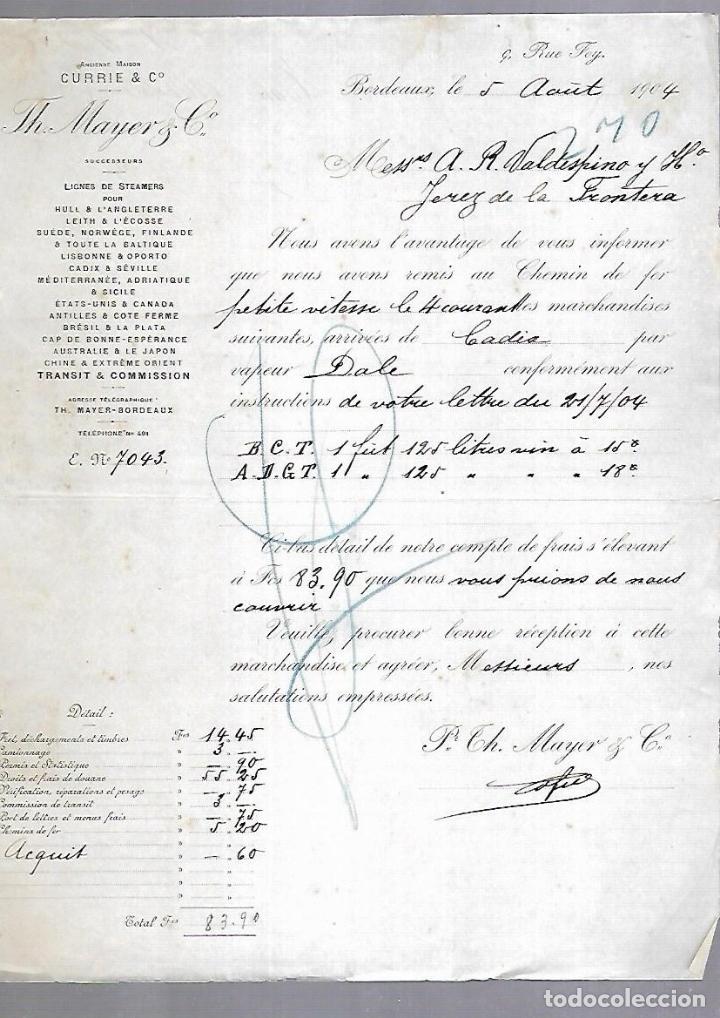 ANCIENNE MAISON
CURRIE & Cº
Th. Mayer & Cº.
SUCCESSEURS
LIGNES DE STEAMERS
POUR
HULL & L'ANGLETERRE
LEITH & L'ÉCOSSE
SUÈDE, NORWÈGE, FINLANDE
& TOUTE LA BALTIQUE
LISBONNE & OPORTO
CADIX & SÉVILLE
MÉDITERRANÉE, ADRIATIQUE
& SICILE
ÉTATS-UNIS & CANADA
ANTILLES & COTE FERME
BRÉSIL & LA PLATA
CAP DE BONNE-ESPÉRANCE
AUSTRALIE & LE JAPON
CHINE & EXTRÊME ORIENT
TRANSIT & COMMISSION
ADRESSE TÉLÉGRAPHIQUE
TH. MAYER-BORDEAUX
TÉLÉPHONE Nº 491
E. Nº 7043.
9, Rue Foy.
Bordeaux, le 5 Août 1904
270
Messrs A. R. Valdespino y Hº
Jerez de la Frontera
Nous avons l'avantage de vous informer
que nous avons remis au Chemin de fer
petite vitesse le 4 courant les marchandises
suivantes, arrivées de Cadix par
vapeur Dale conformément aux
instructions de votre lettre du 21/7/04
B.C.T. 1 fût 125 litres vin à 15º
A.D.G.T. 1 " 125 " " " 18º
Ci-bas détail de notre compte de frais s'élevant
à Fcs 83.90 que nous vous prions de nous
couvrir
Veuillez procurer bonne réception à cette
marchandise et agréer, Messieurs, nos
salutations empressées.
Pr. Th. Mayer & Cº.
Détail :
Fret, déchargements et timbres Fcs 14.45
Camionnage " 3.—
Permis et Statistique " —.90
Droits et frais de douane " 55.25
Vérification, réparations et pesage " —.75
Commission de transit " 3.—
Port de lettres et menus frais " —.75
Chemins de fer " 5.20
Acquit " —.60
Total Fcs 83.90
todocoleccion